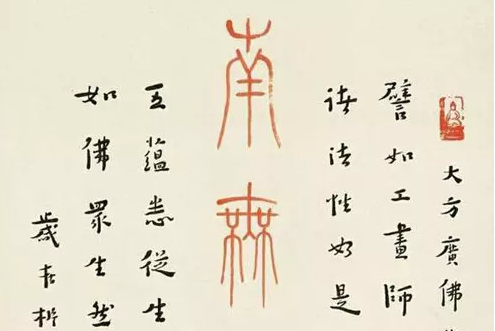 大方廣佛
譬如工畫師
諸法性如是
南無
五蘊悉從生
如佛眾生然
歲在析